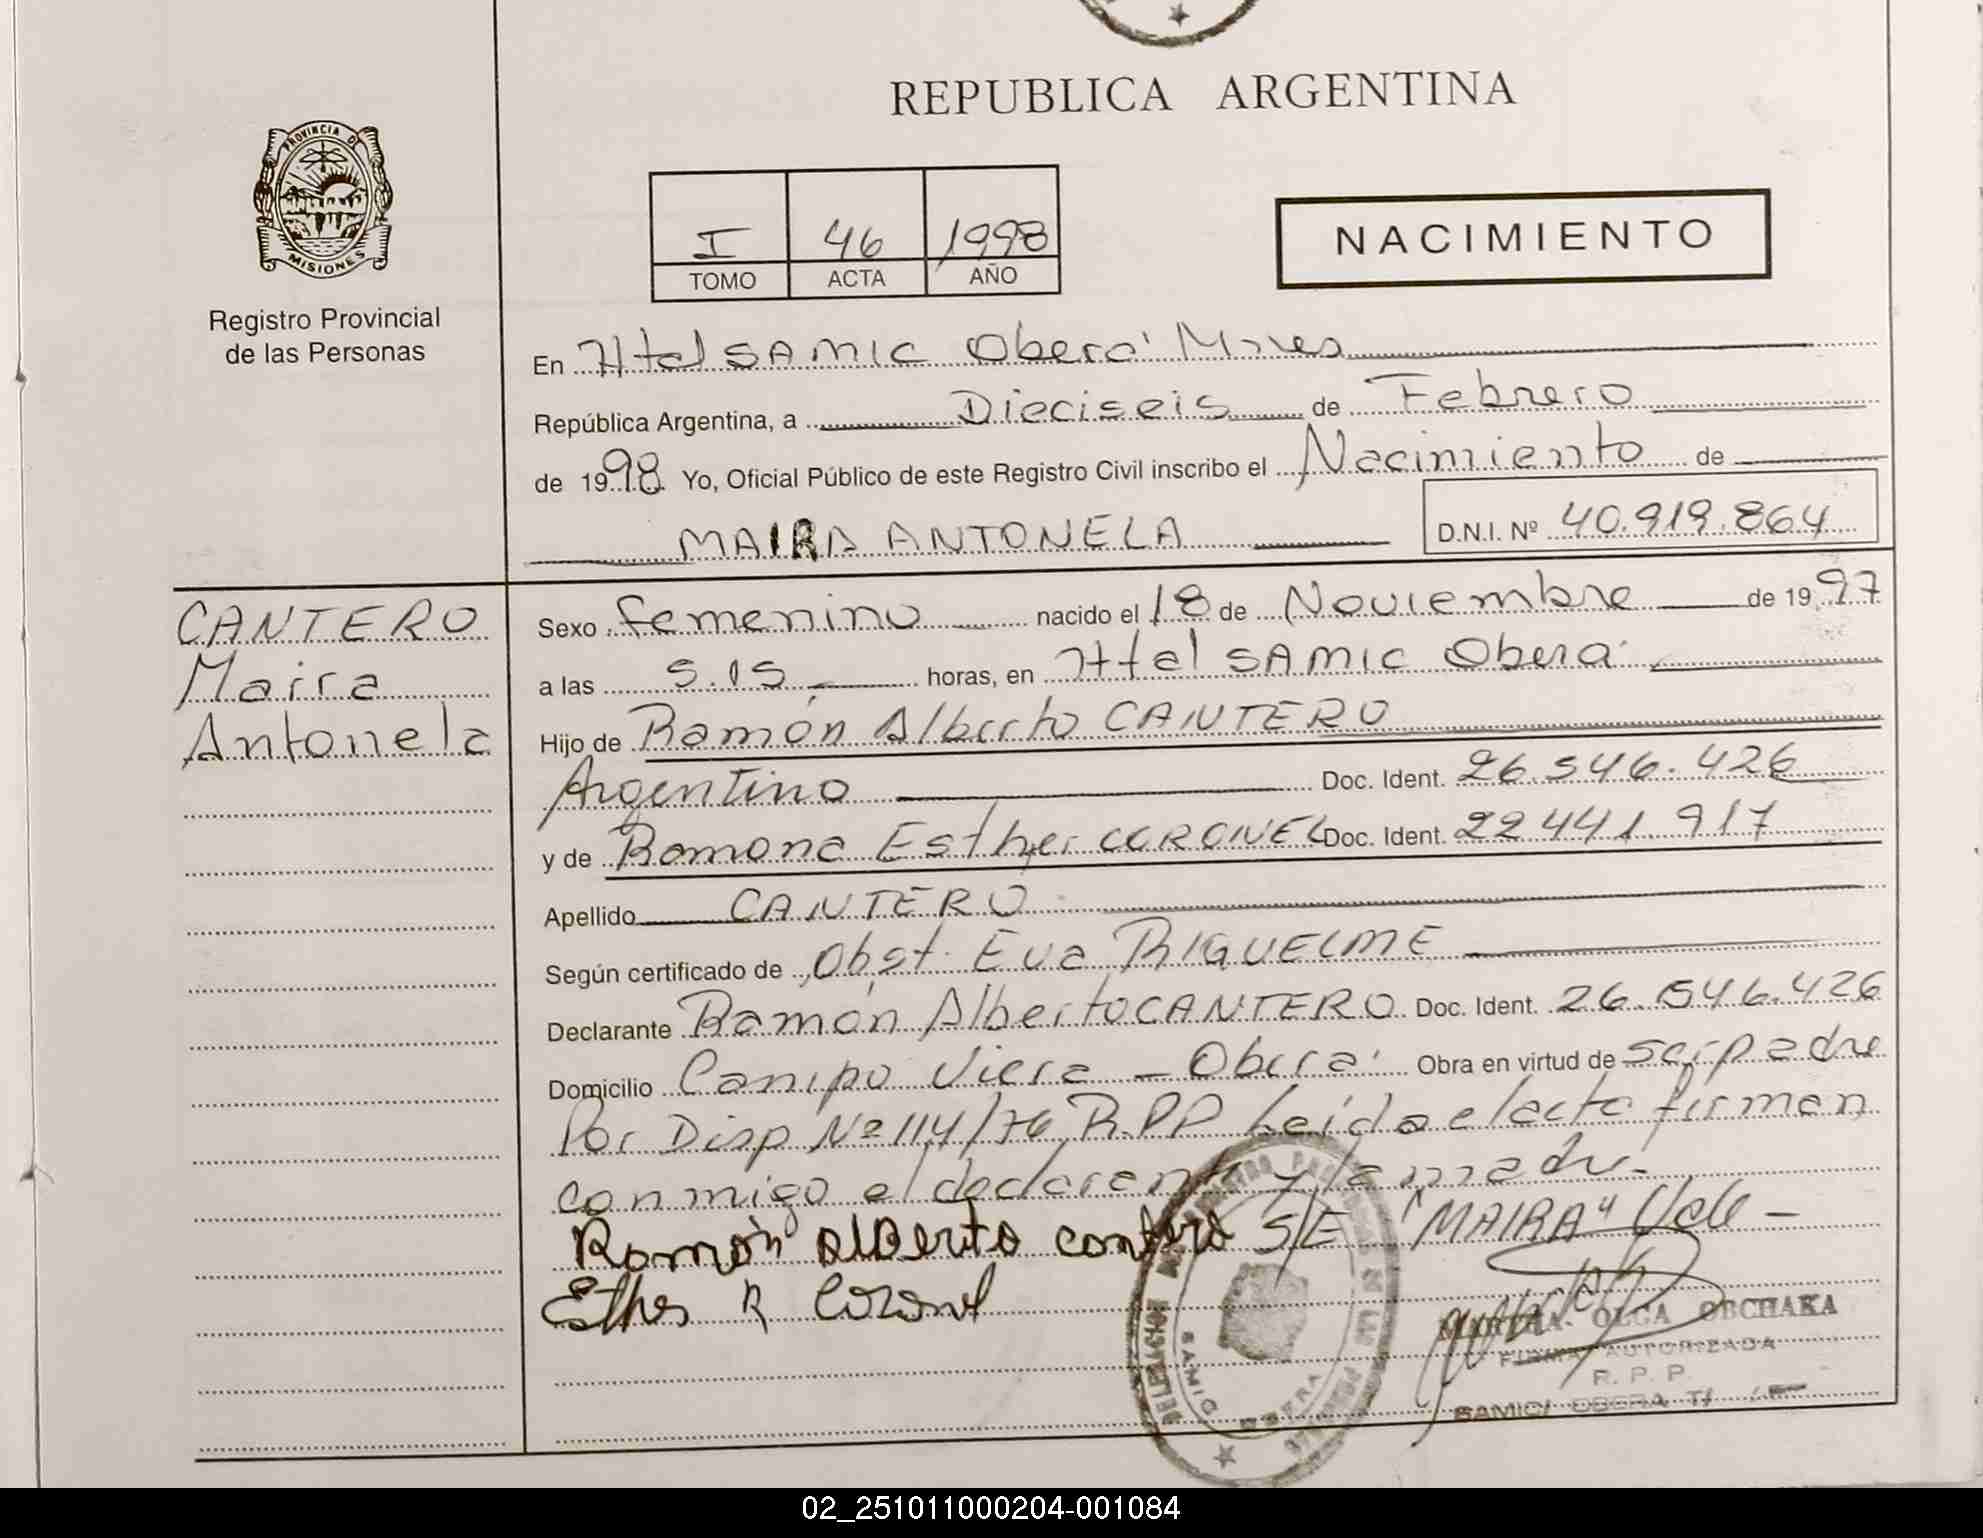 REPUBLICA ARGENTINA
PROVINCIA DE
MISIONES
Registro Provincial
de las Personas
I 46 1998
TOMO ACTA AÑO
NACIMIENTO
En Htal SAMIC Oberá Mnes
República Argentina, a Dieciseis de Febrero
de 1998 Yo, Oficial Público de este Registro Civil inscribo el Nacimiento de
MAIRA ANTONELA D.N.I. Nº 40.919.864
CANTERO
Maira
Antonela
Sexo femenino nacido el 18 de Noviembre de 1997
a las 5.15 horas, en Htal SAMIC Oberá
Hijo de Ramón Alberto CANTERO
Argentino Doc. Ident. 26.546.426
y de Ramona Esther CORONEL Doc. Ident. 22.441.917
Apellido CANTERO
Según certificado de Obst. Eva RIQUELME
Declarante Ramón Alberto CANTERO Doc. Ident. 26.546.426
Domicilio Campo Viera - Oberá Obra en virtud de ser padre
Por Disp Nº 114/76 R.P.P Leida el acta firman
conmigo el declarante y la madre.
Ramón Alberto cantero S/E "MAIRA" Vale -
Esther R Coronel
OLGA OBCHAKA
FIRMA AUTORIZADA
R. P. P.
SAMIC/ OBERA
DELEGACION
SAMIC
OBERA
02_251011000204-001084